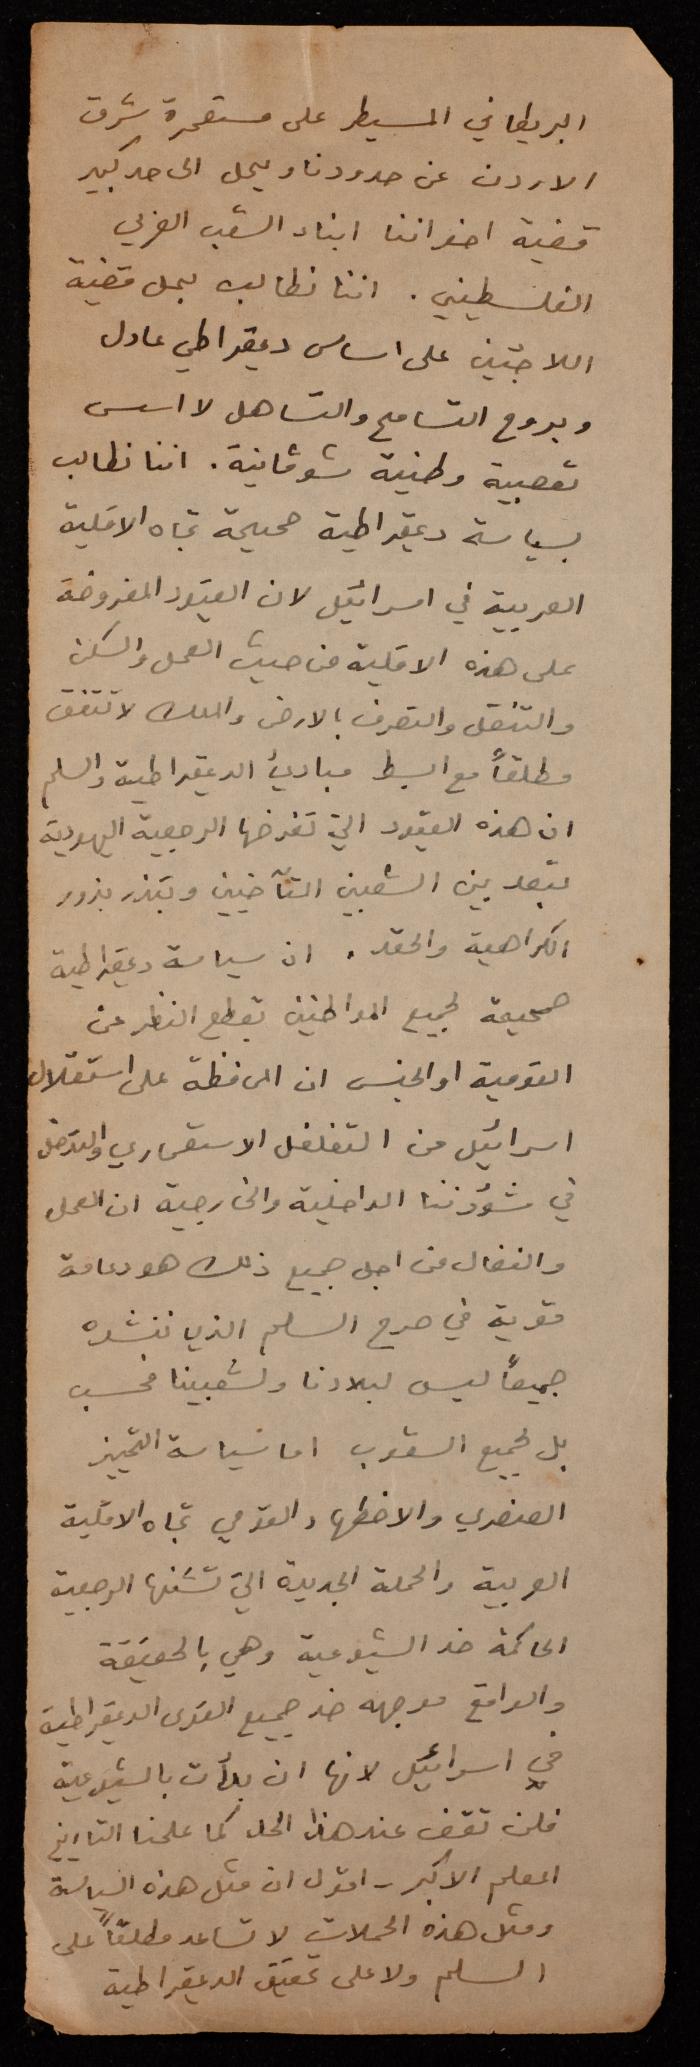 البريطاني المسيطر على مستعمرة شرق
الاردن عن حدودنا ويحل الى حد كبير
قضية اخواننا ابناء الشعب العربي
الفلسطيني . اننا نطالب بحل قضية
اللاجئين على اساس ديمقراطي عادل
وبروح التسامح والتساهل لا اسس
تعصبية وطنية شوفانية . اننا نطالب
بسياسة ديمقراطية صحيحة تجاه الاقلية
العربية في اسرائيل لان القيود المفروضة
على هذه الاقلية من حيث العمل والسكن
والتنقل والتصرف بالارض والملك لا تتفق
مطلقاً مع ابسط مبادئ الديمقراطية والسلم
ان هذه القيود التي تفرضها الرجعية اليهودية
تبعد بين الشعبين المتآخيين وتبذر بذور
الكراهية والحقد . ان سياسة ديمقراطية
صحيحة لجميع المواطنين بقطع النظر عن
القومية او الجنس ان المحافظة على استقلال
اسرائيل من التغلغل الاستعماري والتدخل
في شؤوننا الداخلية والخارجية ان العمل
والنضال من اجل جميع ذلك هو دعامة
قوية في صرح السلم الذي ننشده
جميعاً ليس لبلادنا ولشعبينا فحسب
بل لجميع الشعوب اما سياسة التمييز
العنصري والاضطهاد القومي تجاه الاقلية
العربية والحملة الجديدة التي تشنها الرجعية
الحاكمة ضد الشيوعية وهي بالحقيقة
والواقع موجهه ضد جميع القوى الديمقراطية
في اسرائيل لانها ان بدأت بالشيوعية
فلن تقف عند هذا الحد كما علمنا التاريخ
المعلم الاكبر - اقول ان مثل هذه السياسة
ومثل هذه الحملات لا تساعد مطلقاً على
السلم ولا على تحقيق الديمقراطية